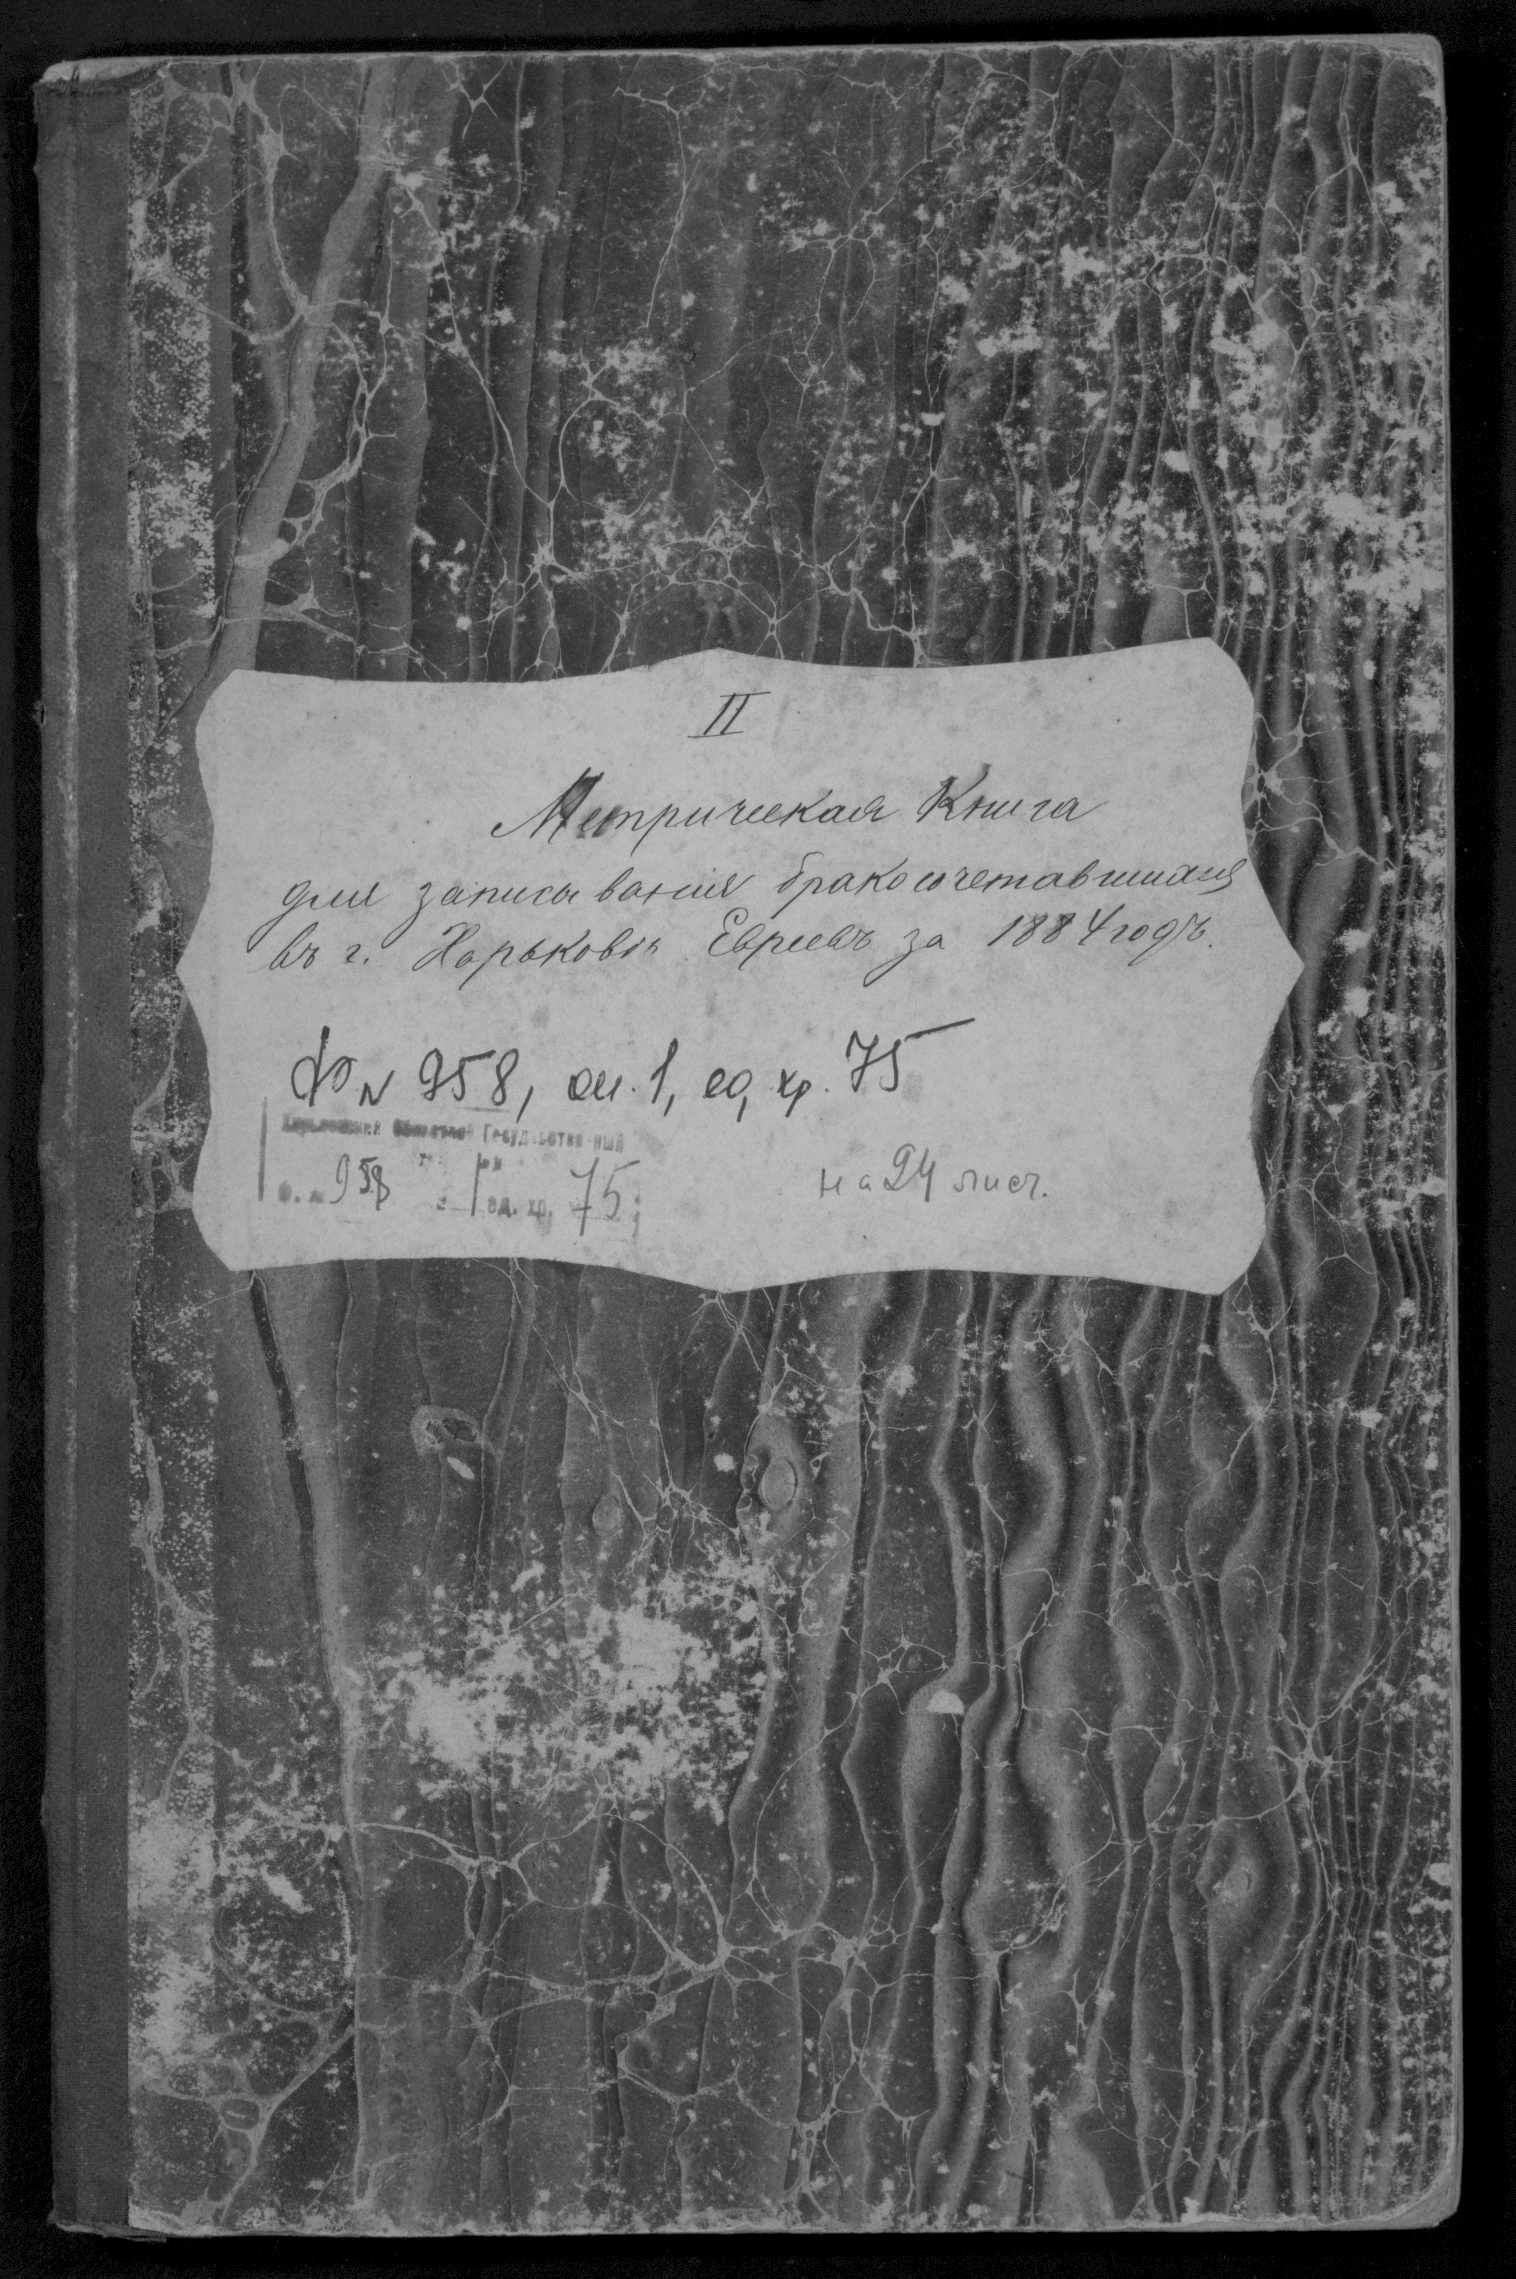 II
Метрическая Книга
для записыванiя бракосочетавшихся
въ г. Харьковѣ Евреевъ за 1884 годъ.
Ф N 958, оп. 1, ед. хр. 75
Харьковский Областной Государственный
Ф. № 958 1 ед. хр. 75
на 24 лист.